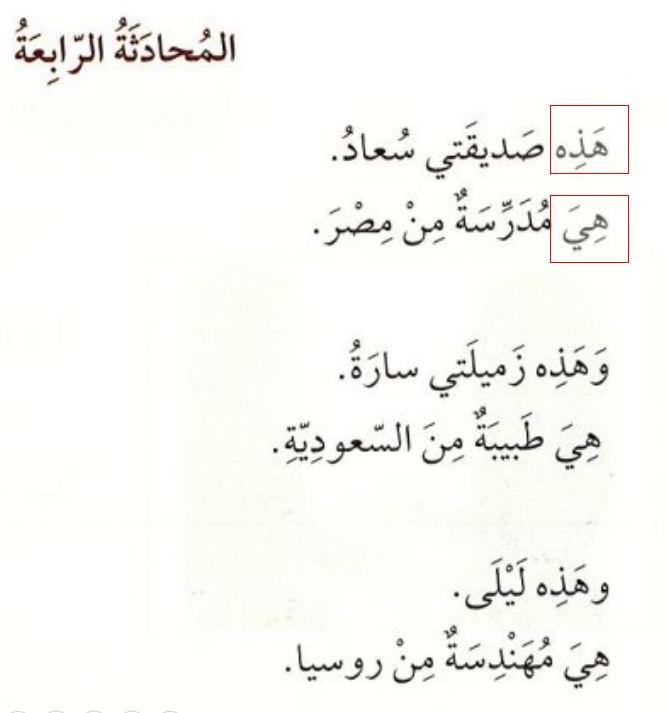 المُحادَثَةُ الرّابِعَةُ
هَذِه صَديقَتي سُعادُ.
هِيَ مُدَرِّسَةٌ مِنْ مِصْرَ.
وَهَذِه زَميلَتي سارَةُ.
هِيَ طَبيبَةٌ مِنَ السّعودِيّةِ.
وهَذِه لَيْلَى.
هِيَ مُهَنْدِسَةٌ مِنْ روسيا.